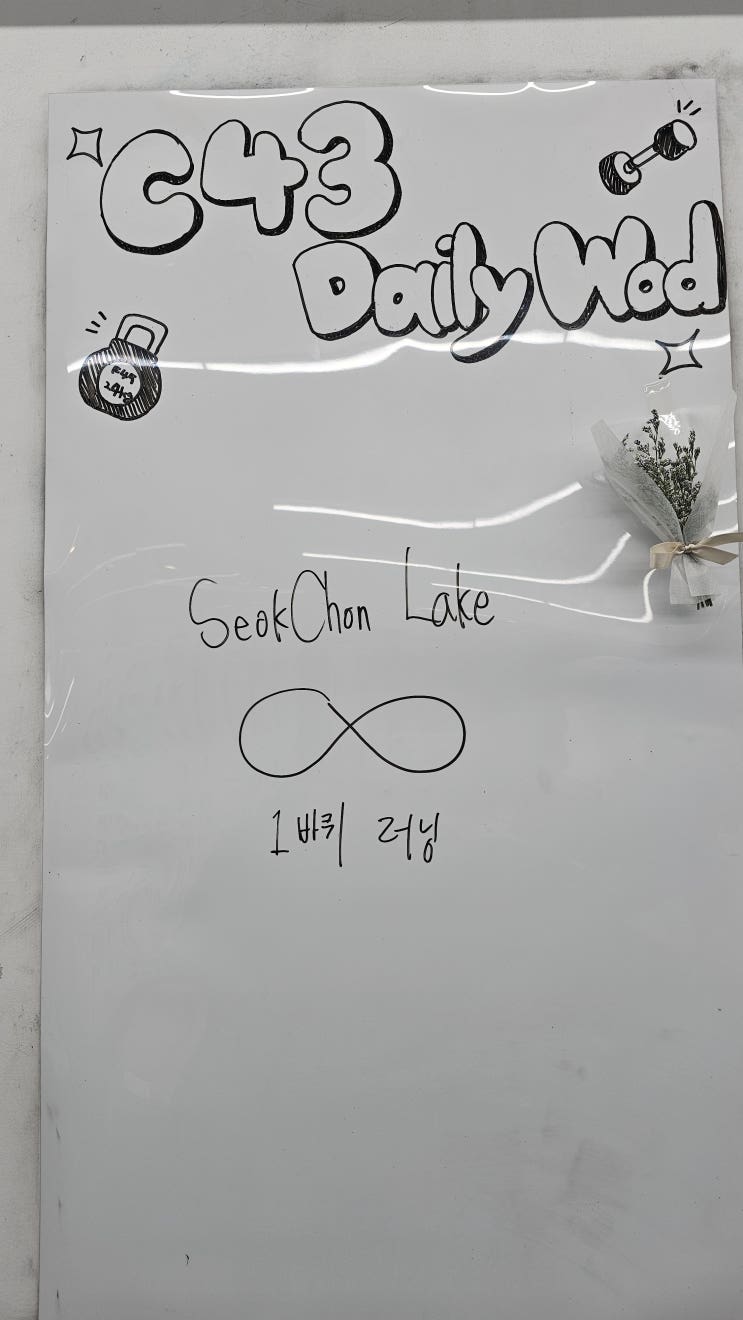 C43
Daily Wod
SeokChon Lake
1바퀴 러닝